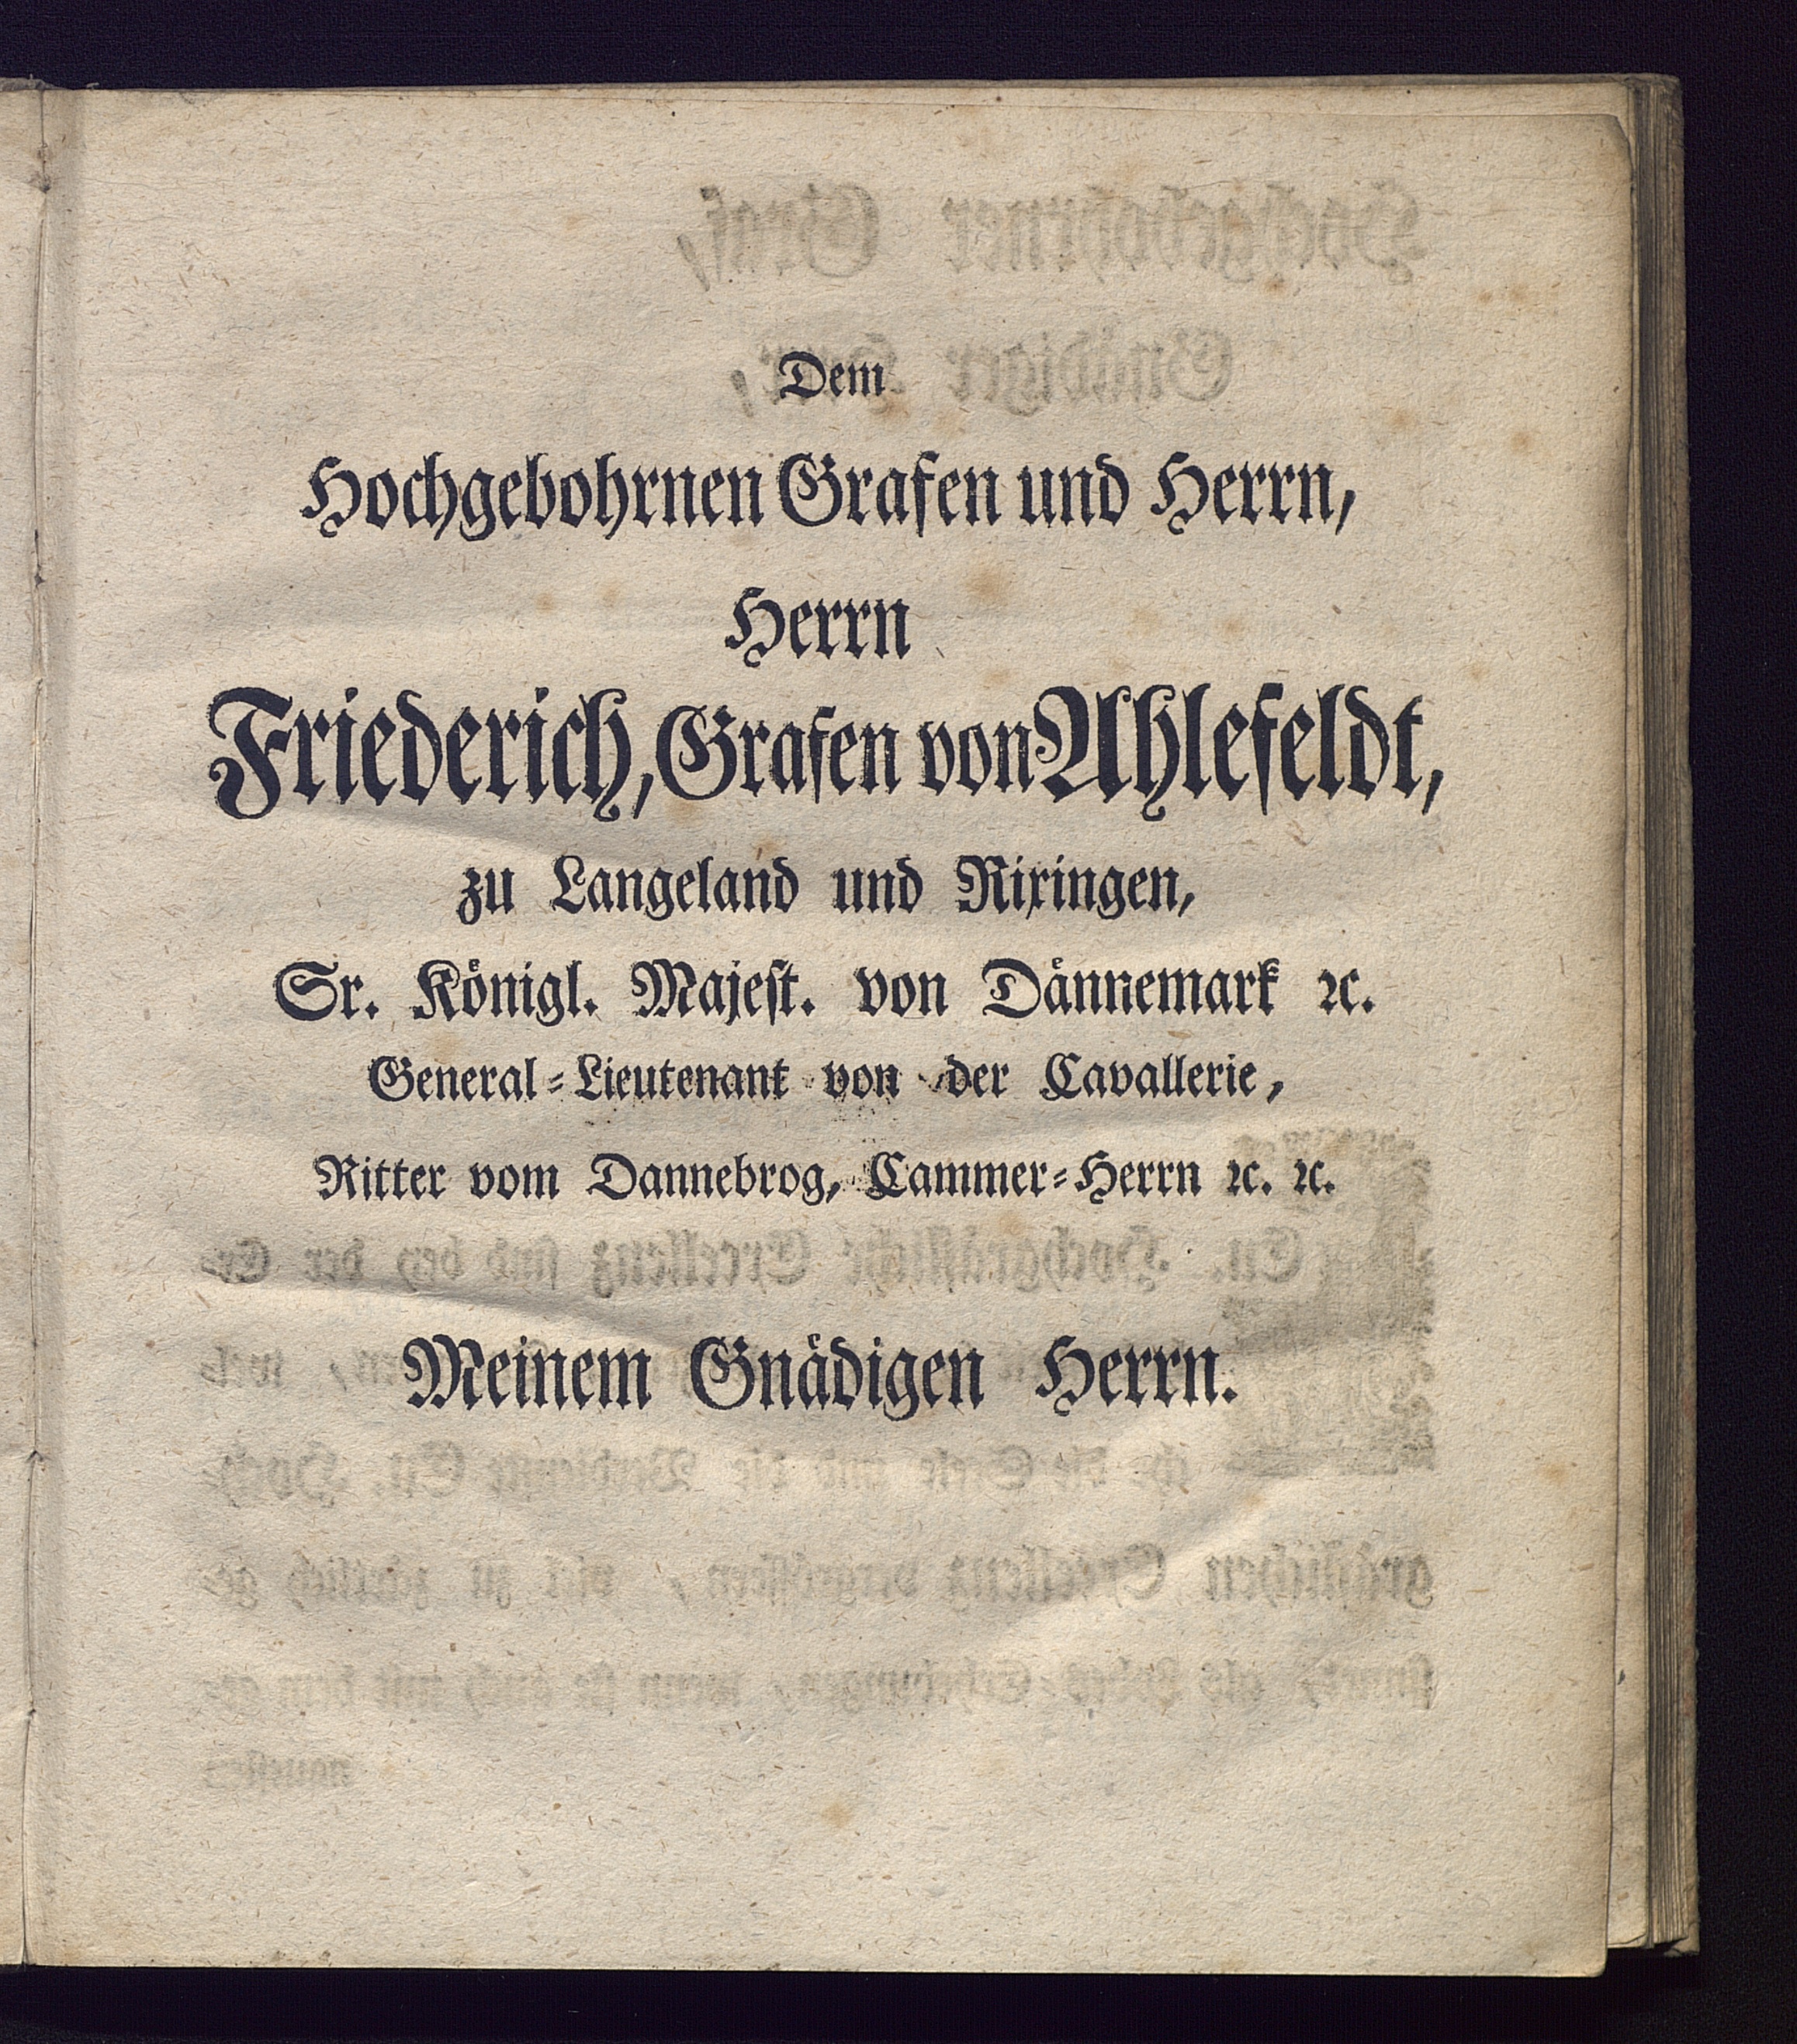 Dem
Hochgebohrnen Grafen und Herrn,
Herrn
Friederich, Grafen von Ahlefeldt,
zu Langeland und Rixingen,
Sr. Königl. Majest. von Dännemark ꝛc.
General-Lieutenant von der Cavallerie,
Ritter vom Dannebrog, Cammer-Herrn ꝛc. ꝛc.
Meinem Gnädigen Herrn.